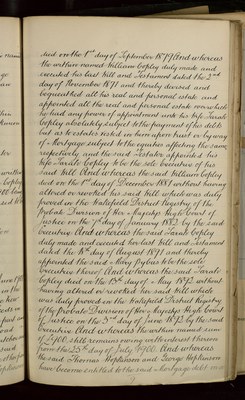 died on the 1st day of September 1879 And whereas
the within named William Copley duly made and
executed his last Will and Testament dated the 2nd
day of November 1871 and thereby devised and
bequeathed all his real and personal estate and
appointed all the real and personal estate over which
he had any power of appointment unto his wife Sarah
Copley absolutely subject to the payment of his debts
but as to estates vested in him upon trust or by way
of Mortgage subject to the equities affecting the same
respectively and the said Testator appointed his
wife Sarah Copley to be the sole Executrix of his
said Will And whereas the said William Copley
died on the day of December 1881 without having
altered or revoked his said Will which was duly
proved in the Wakefield District Registry of the
Probate Division of Her Majesty's High Court of
Justice on the 7th day of January 1882 by the said
Executrix And whereas the said Sarah Copley
duly made and executed her last Will and Testament
dated the 18th day of August 1891 and thereby
appointed the said Mary to be the sole
Executrix thereof And whereas the said Sarah
Copley died on the 13th day of May 1892 without
having altered or revoked her said Will which
was duly proved in the Wakefield District Registry
of the Probate Division of Her Majesty's High Court
of Justice on the 3rd day of June 1892 by the said
Executrix And whereas the within named sum
of still remains owing with interest thereon
from the 23rd day of July 1900 And whereas
the said Thomas Hopkinson and George Hopkinson
have become entitled to the said Mortgage debt